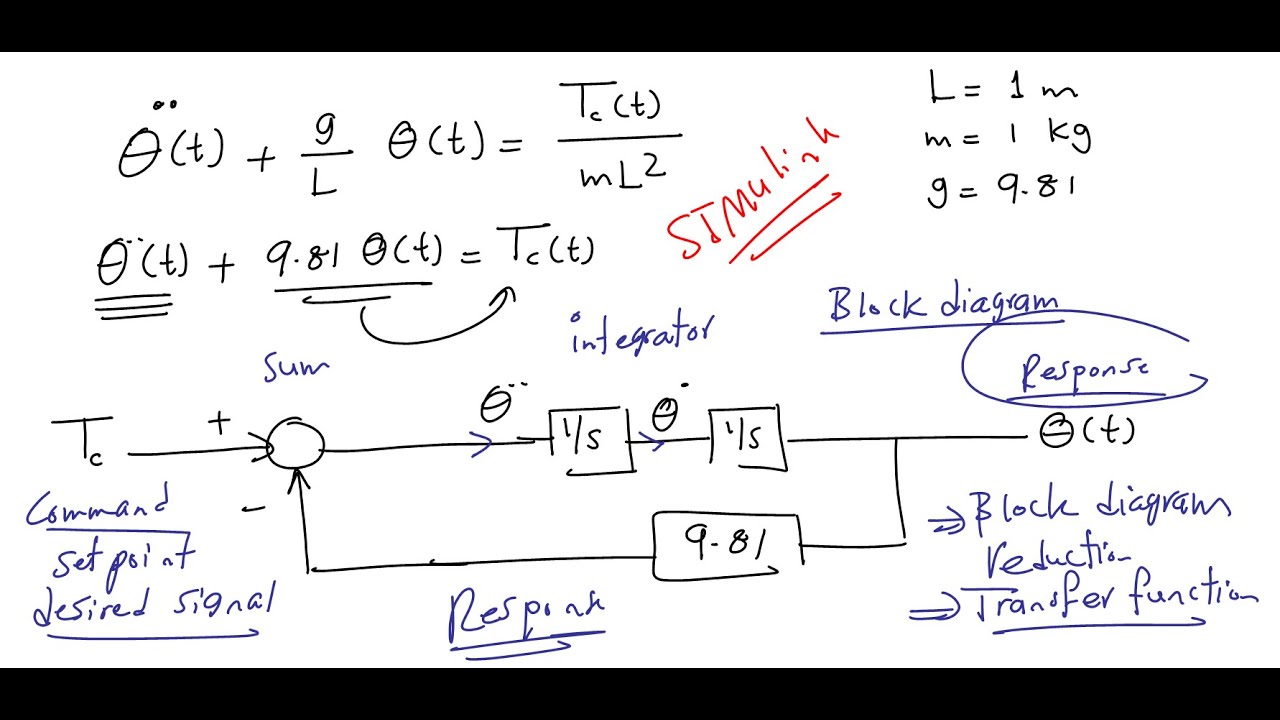 θ̈(t) + g/L θ(t) = Tc(t)/mL²
L = 1 m
m = 1 Kg
g = 9.81
SIMulink
θ̈(t) + 9.81 θ(t) = Tc(t)
Block diagram
sum
integrator
Response
Tc
+
θ̈
1/s
θ̇
1/s
θ(t)
-
9.81
Command
set point
desired signal
Response
⇒ Block diagram
reduction
⇒ Transfer function